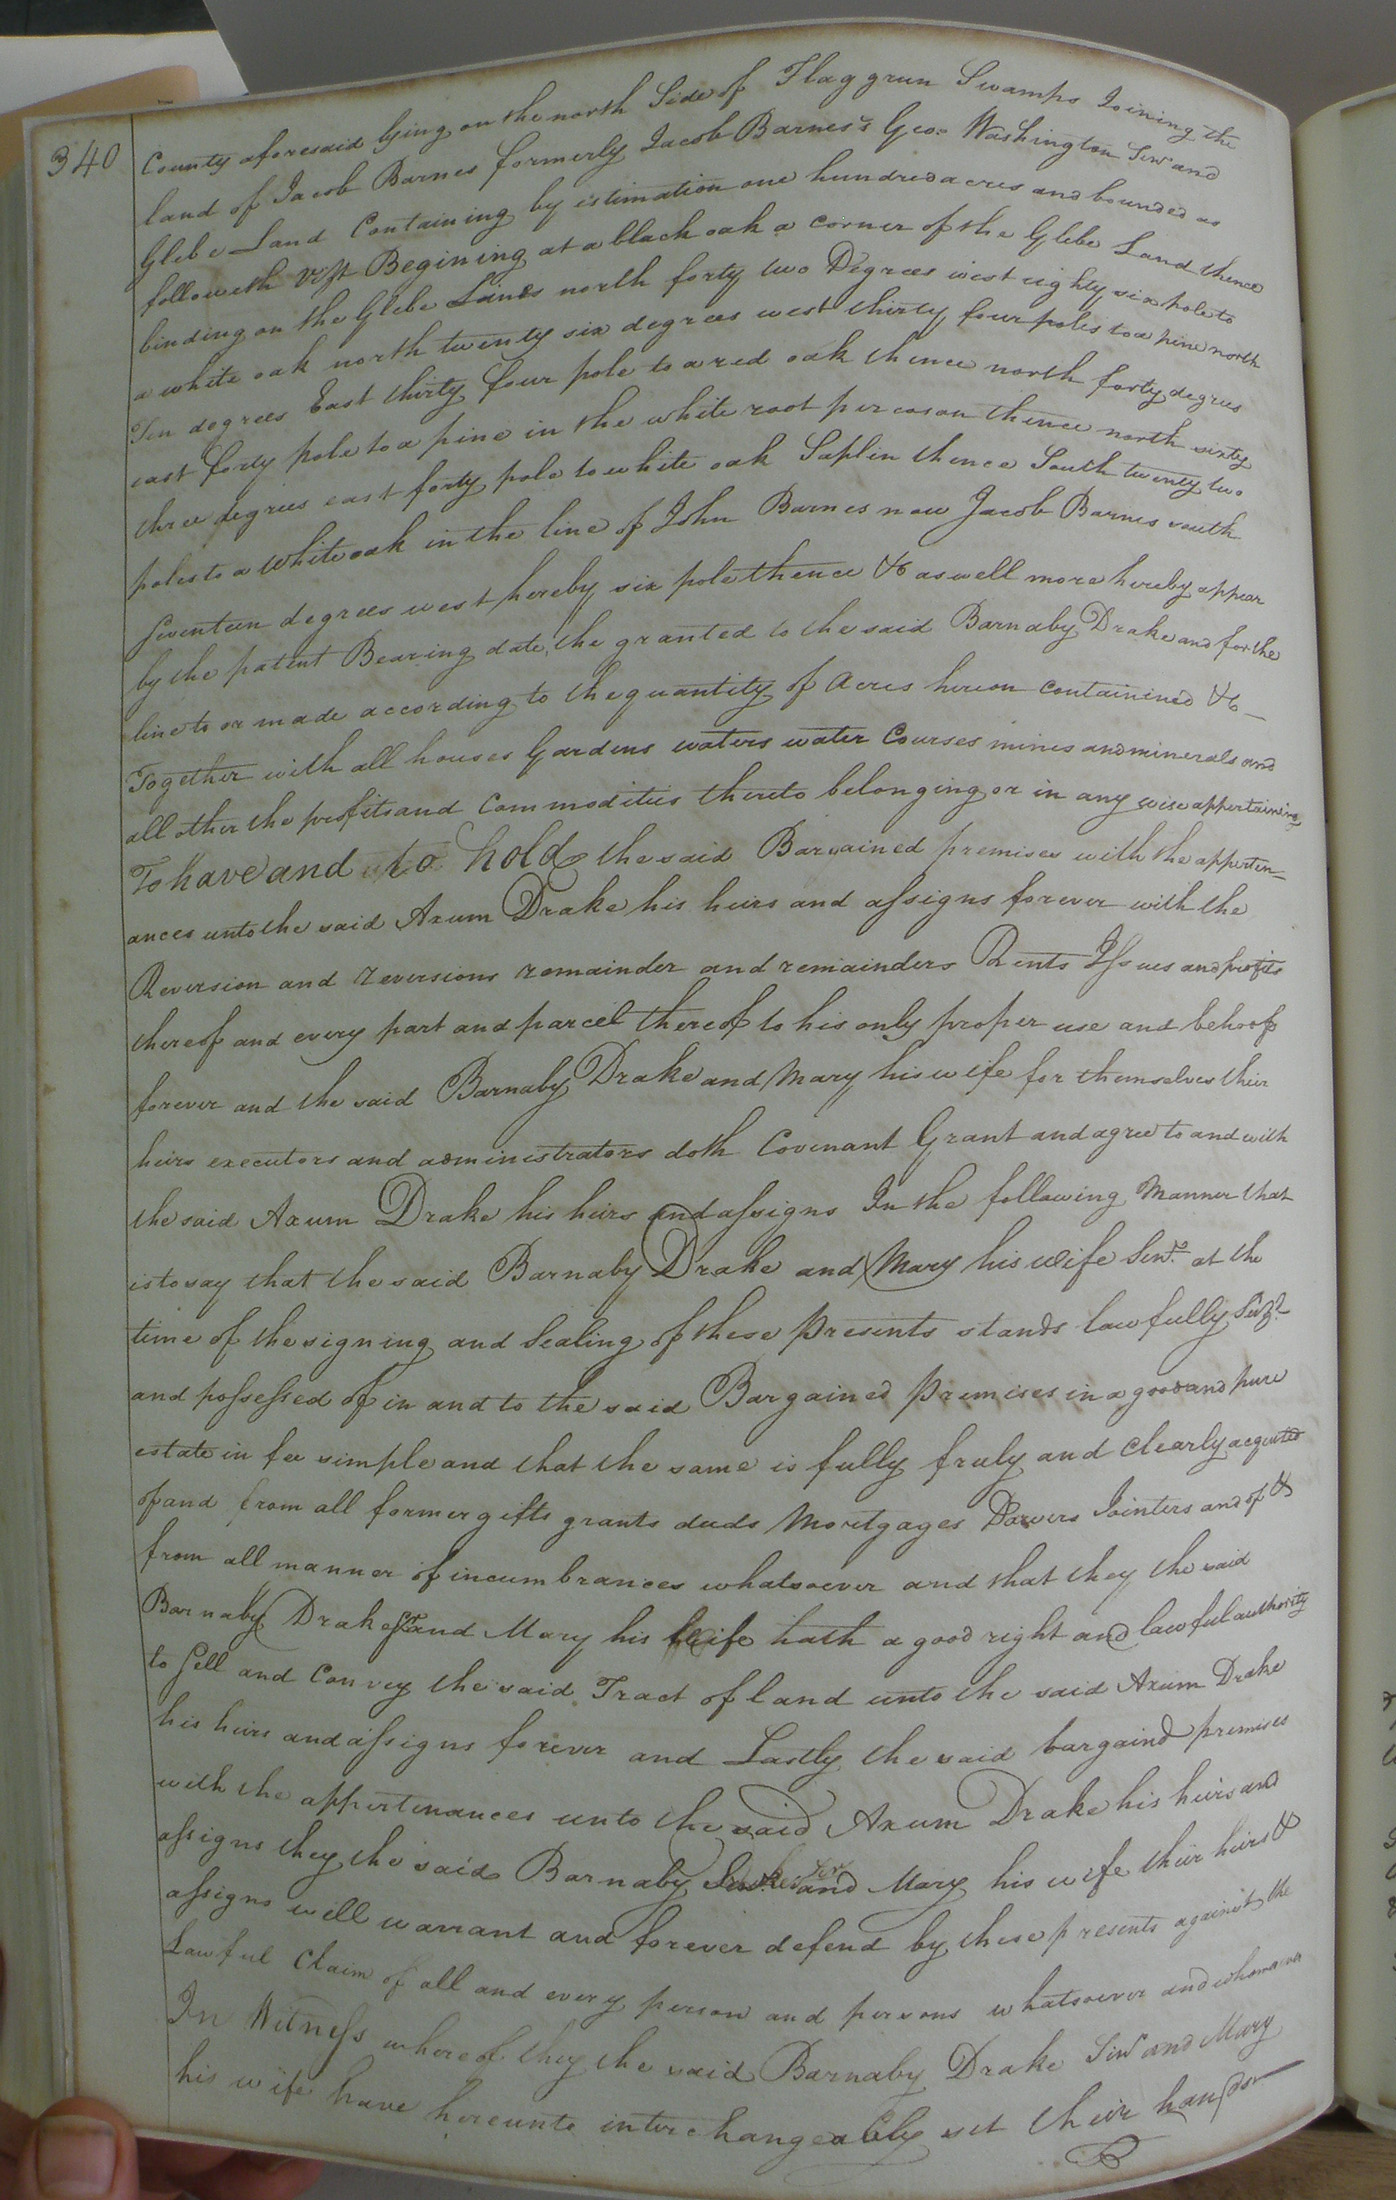 340
County aforesaid lying on the north Side of Flaggrun Swamps Joining the
land of Jacob Barnes formerly Jacob Barnes's Geo: Washington Senr and
Glebe Land Containing by estimation one hundred acres and bounded as
followeth Vizt Begining at a black oak a corner of the Glebe Land thence
binding on the Glebe Lands north forty two Degrees west eighty six pole to
a white oak north twenty six degrees west thirty four poles to a pine north
Ten degrees East thirty four pole to a red oak thence north forty degrees
east forty pole to a pine in the white root percoson thence north sixty
three degrees east forty pole to white oak Saplin thence South twenty two
poles to a white oak in the line of John Barnes now Jacob Barnes south
Seventeen degrees west hereby six pole thence &c as well more hereby appear
by the patent Bearing date the granted to the said Barnaby Drake and for the
line to or made according to the quantity of acres hereon containined &c
Together with all houses Gardens waters water Courses mines and minerals and
all other the profits and commodities thereto belonging or in any wise appertaining
To have and to hold the said Bargained premises with the apperten-
ances unto the said Axum Drake his heirs and assigns forever with the
Reversion and reversions remainder and remainders Rents Issues and profits
thereof and every part and parcel thereof to his only proper use and behoof
forever and the said Barnaby Drake and Mary his wife for themselves their
heirs executors and administrators doth Covenant Grant and agree to and with
the said Axum Drake his heirs and assigns In the following Manner that
is to say that the said Barnaby Drake and Mary his wife Senr at the
time of the signing and Sealing of these Presents stands lawfully Seizd
and possessed of in and to the said Bargained Premises in a good and pure
estate in fee simple and that the same is fully fruly and Clearly acquited
of and from all former gifts grants deeds Mortgages Dowers Jointers and of &
from all manner of incumbrances whatsoever and that they the said
Barnaby Drake Sr and Mary his wife hath a good right and lawful authority
to Sell and Convey the said Tract of land unto the said Axum Drake
his heirs and assigns forever and Lastly the said bargaind premises
with the appertenances unto the said Axum Drake his heirs and
assigns they the said Barnaby Drake Senr and Mary his wife their heirs &
assigns will warrant and forever defend by these presents against the
Lawful Claim of all and every person and persons whatsoever and whomsoever
In Witness whereof they the said Barnaby Drake Senr and Mary
his wife have hereunto interchangeably set their hands